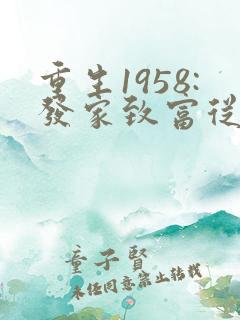 重生1958:
發家致富從
童子賢
未任同意禁止轉載